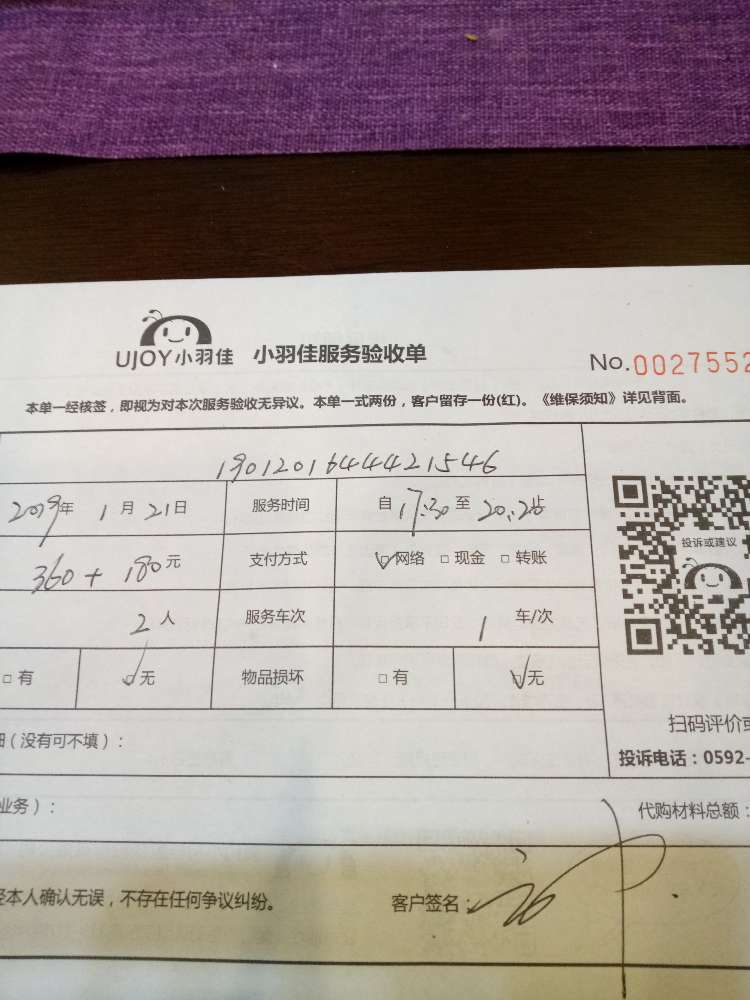 UJOY小羽佳 小羽佳服务验收单 No.0027552
本单一经核签，即视为对本次服务验收无异议。本单一式两份，客户留存一份(红)。《维保须知》详见背面。
1901201644421546
2019年 1月 21日 服务时间 自 17:30 至 20:26 止
投诉或建议
360 + 180 元 支付方式 ☑网络 □现金 □转账
2 人 服务车次 1 车/次
□有 ☑无 物品损坏 □有 ☑无
扫码评价或
细（没有可不填）：
投诉电话：0592-
业务）：
代购材料总额：
经本人确认无误，不存在任何争议纠纷。 客户签名：